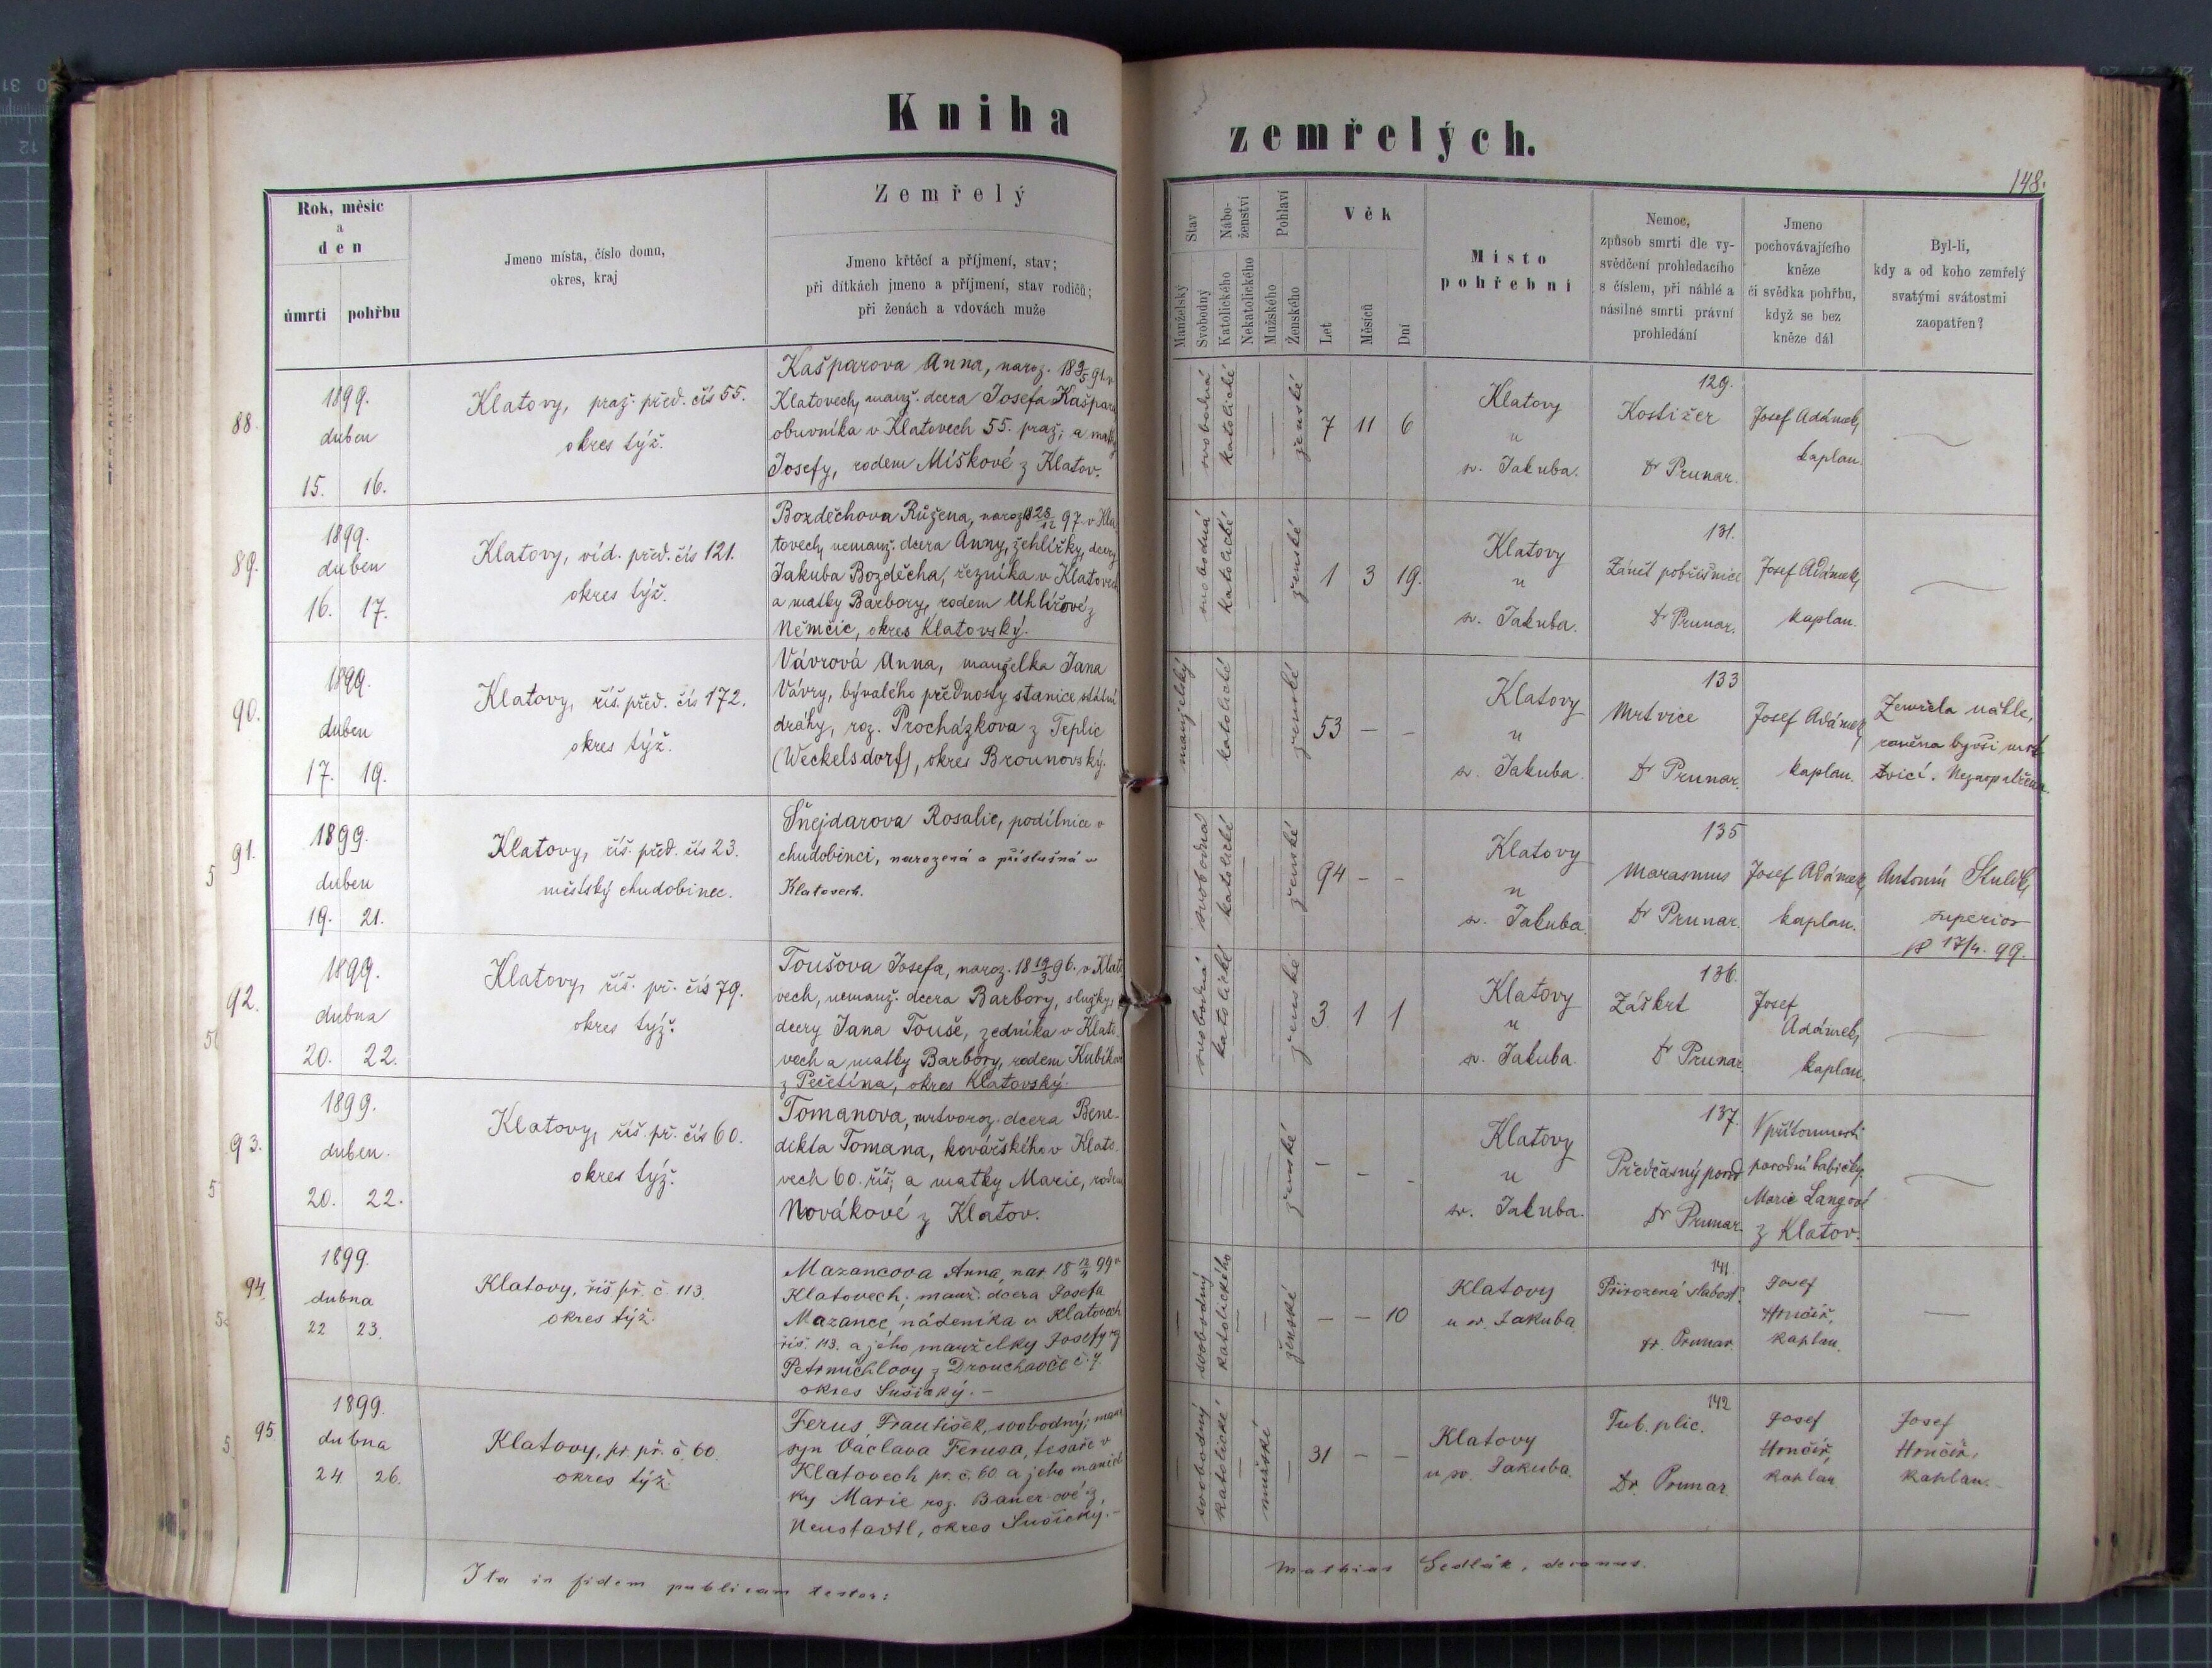 Kniha zemřelých.
148.
Rok, měsíc
a
den
úmrtí pohřbu
Jmeno místa, číslo domu,
okres, kraj
Zemřelý
Jmeno křtěcí a příjmení, stav;
při dítkách jmeno a příjmení, stav rodičů;
při ženách a vdovách muže
Stav
Manželský
Svobodný
Nábo-
ženství
Katolického
Nekatolického
Pohlaví
Mužského
Ženského
Věk
Let
Měsíců
Dní
Místo
pohřební
Nemoc,
způsob smrti dle vy-
svědčení prohledacího
s číslem, při náhlé a
násilné smrti právní
prohledání
Jmeno
pochovávajícího
kněze
či svědka pohřbu,
když se bez
kněze dál
Byl-li,
kdy a od koho zemřelý
svatými svátostmi
zaopatřen?
88.
1899.
duben
15. 16.
Klatovy, praž. před. čís 55.
okres týž.
Kašparova Anna, naroz. 18 9/5 91 v
Klatovech, manž. dcera Josefa Kašpara
obuvníka v Klatovech 55. praž; a matky
Josefy, rodem Míškové z Klatov.
svobodná
katolické
ženské
7 11 6
Klatovy
u
sv. Jakuba.
129.
Kostižer
Dr Prunar.
Josef Adámek,
kaplan.
89.
1899.
duben
16. 17.
Klatovy, víd. před. čís 121.
okres týž.
Bozděchova Růžena, naroz 18 28/12 97 v Kla
tovech, nemanž. dcera Anny, žehlířky, dcery
Jakuba Bozděcha, řezníka v Klatovech
a matky Barbory, rodem Uhlířové z
Němčic, okres Klatovský.
svobodná
katolické
ženské
1 3 19.
Klatovy
u
sv. Jakuba.
131.
Zánět pobřišnice
Dr Prunar.
Josef Adámek,
kaplan.
90.
1899.
duben
17. 19.
Klatovy, říš. před. čís 172.
okres týž.
Vávrová Anna, manželka Jana
Vávry, bývalého přednosty stanice státní
dráhy, roz. Procházkova z Teplic
(Weckelsdorf), okres Brounovský.
manželský
katolické
ženské
53 - -
Klatovy
u
sv. Jakuba.
133
Mrtvice
Dr Prunar.
Josef Adámek,
kaplan.
Zemřela náhle,
raněna byvši mrt
tvicí. Nezaopatřena.
91.
1899.
duben
19. 21.
Klatovy, říš. před. čís 23.
městský chudobinec.
Šnejdarova Rosalie, podílnice v
chudobinci, narozená a příslušná v
Klatovech.
svobodná
katolické
ženské
94 - -
Klatovy
u
sv. Jakuba.
135
Marasmus
Dr Prunar.
Josef Adámek,
kaplan.
Antonín
superior
18 17/4. 99.
92.
1899.
dubna
20. 22.
Klatovy, říš. př. čís 79.
okres týž.
Toušova Josefa, naroz. 18 19/3 96. v Klato
vech, nemanž. dcera Barbory, služky,
dcery Jana Touše, zedníka v Klato
vech a matky Barbory, rodem Kubíkové
z Pečetína, okres Klatovský.
svobodná
katolické
ženské
3 1 1
Klatovy
u
sv. Jakuba.
136.
Záškrt
Dr Prunar.
Josef
Adámek,
kaplan.
93.
1899.
duben.
20. 22.
Klatovy, říš. př. čís 60.
okres týž.
Tomanova, mrtvoroz. dcera Bene-
dikta Tomana, kovářského v Klato
vech 60. říš; a matky Marie, rodem
Novákové z Klatov.
ženské
- - -
Klatovy
u
sv. Jakuba.
137.
Předčasný porod
Dr Prunar.
V přítomnosti
porodní babičky
Marie Langové
z Klatov.
94.
1899.
dubna
22 23.
Klatovy, říš př. č. 113.
okres týž.
Mazancova Anna, nar. 18 12/4 99 v
Klatovech; manž. dcera Josefa
Mazance, nádeníka v Klatovech
říš. 113. a jeho manželky Josefy roz
Petrmichlovy z Drouhavče č. 7.
okres Sušický. -
svobodný
katolického
ženské
- - 10
Klatovy
u sv. Jakuba
141
Přirozená slabost.
Dr. Prunar
Josef
Hrnčíř,
kaplan.
95.
1899.
dubna
24 26.
Klatovy, pr. př. č. 60.
okres týž.
Ferus František, svobodný; manž
syn Václava Ferusa, tesaře v
Klatovech pr. č. 60 a jeho manžel
ky Marie roz. Bauer-ové z
Neustadtl, okres Sušický. -
svobodný
katolické
mužské
31 - -
Klatovy
u sv. Jakuba.
142
Tub. plic.
Dr. Prunar
Josef
Hrnčíř,
kaplan
Josef
Hrnčíř,
kaplan.
Ita in fidem publicam testor:
Mathias Sedlák, decanus.